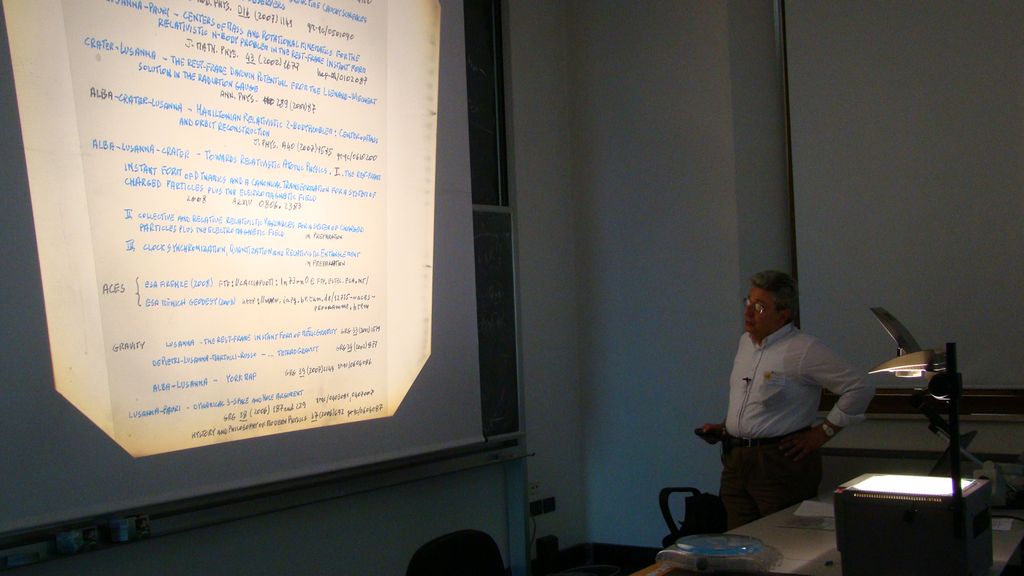 PHYS. D16 (2007) 1149 gr-qc/0501090
LUSANNA-PAURI - CENTERS OF MASS AND ROTATIONAL KINEMATICS FOR THE
RELATIVISTIC N-BODY PROBLEM IN THE REST-FRAME INSTANT FORM
J. MATH. PHYS. 43 (2002) 1677 hep-th/0102087
CRATER-LUSANNA - THE REST-FRAME DARWIN POTENTIAL FROM THE LIENARD-WIECHERT
SOLUTION IN THE RADIATION GAUGE
ANN. PHYS. 289 (2001) 87
ALBA-CRATER-LUSANNA - HAMILTONIAN RELATIVISTIC 2-BODY PROBLEM: CENTER OF MASS
AND ORBIT RECONSTRUCTION
J. PHYS. A40 (2007) 9585 gr-qc/0610200
ALBA-LUSANNA-CRATER - TOWARDS RELATIVISTIC ATOMIC PHYSICS. I. THE REST-FRAME
INSTANT FORM OF DYNAMICS AND A CANONICAL TRANSFORMATION FOR A SYSTEM OF
CHARGED PARTICLES PLUS THE ELECTROMAGNETIC FIELD
2008 ARXIV 0806.2383
II COLLECTIVE AND RELATIVE RELATIVISTIC VARIABLES FOR A SYSTEM OF CHARGED
PARTICLES PLUS THE ELECTROMAGNETIC FIELD IN PREPARATION
III CLOCK SYNCHRONIZATION, QUANTIZATION AND RELATIVISTIC ENTANGLEMENT
IN PREPARATION
ACES { ESA FIRENZE (2008) FTP:
ESA MÜNICH GEODESY (2008) http://www.iapg.bv.tum.de/12735~aces~
programme.html
GRAVITY LUSANNA - THE REST-FRAME INSTANT FORM OF METRIC GRAVITY GRG 33 (2001) 1579
DEPIETRI-LUSANNA-MARTUCCI-RUSSO - ... TETRAD GRAVITY GRG 34 (2002) 877
ALBA-LUSANNA - YORK MAP GRG 39 (2007) 2149
LUSANNA-PAURI - DYNAMICAL 3-SPACE AND HOLE ARGUMENT
GRG 38 (2006) 187 and 229
HISTORY AND PHILOSOPHY OF MODERN PHYSICS 37 (2006) 692 gr-qc/0604087